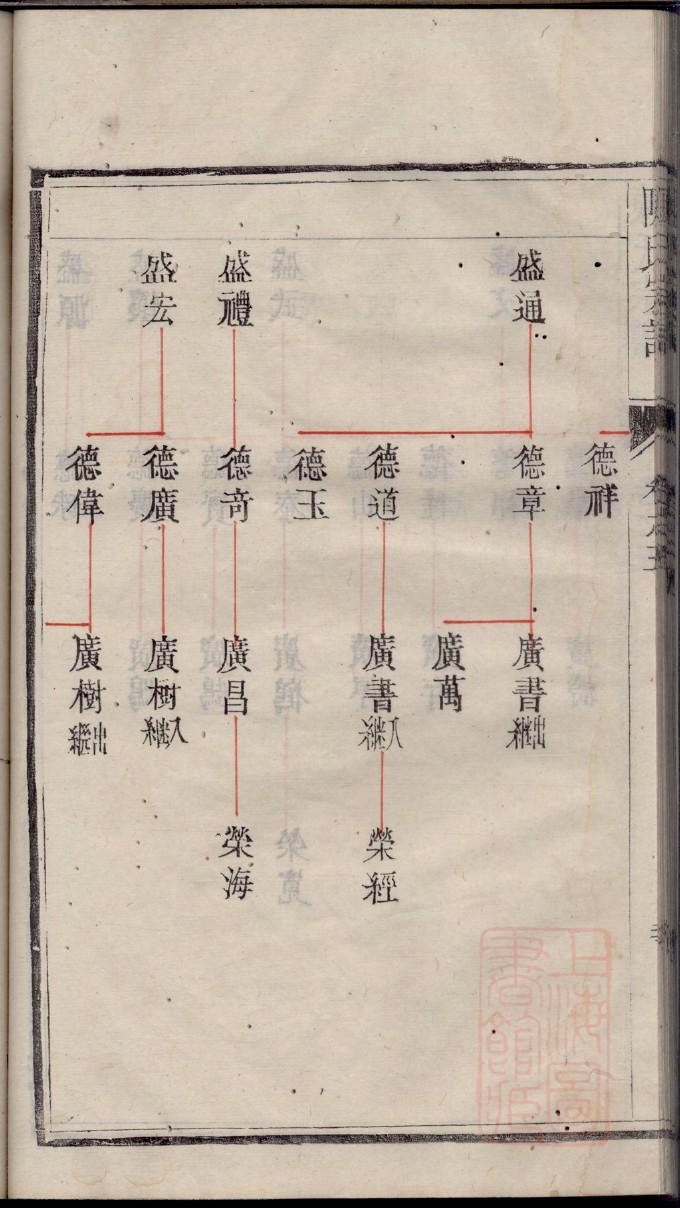 陳氏宗譜
盛通
盛禮
盛宏
德祥
德章
德道
德玉
德奇
德廣
德偉
廣書出繼
廣萬
廣書入繼
廣昌
廣樹入繼
廣樹出繼
榮經
榮海
上海圖
書館藏